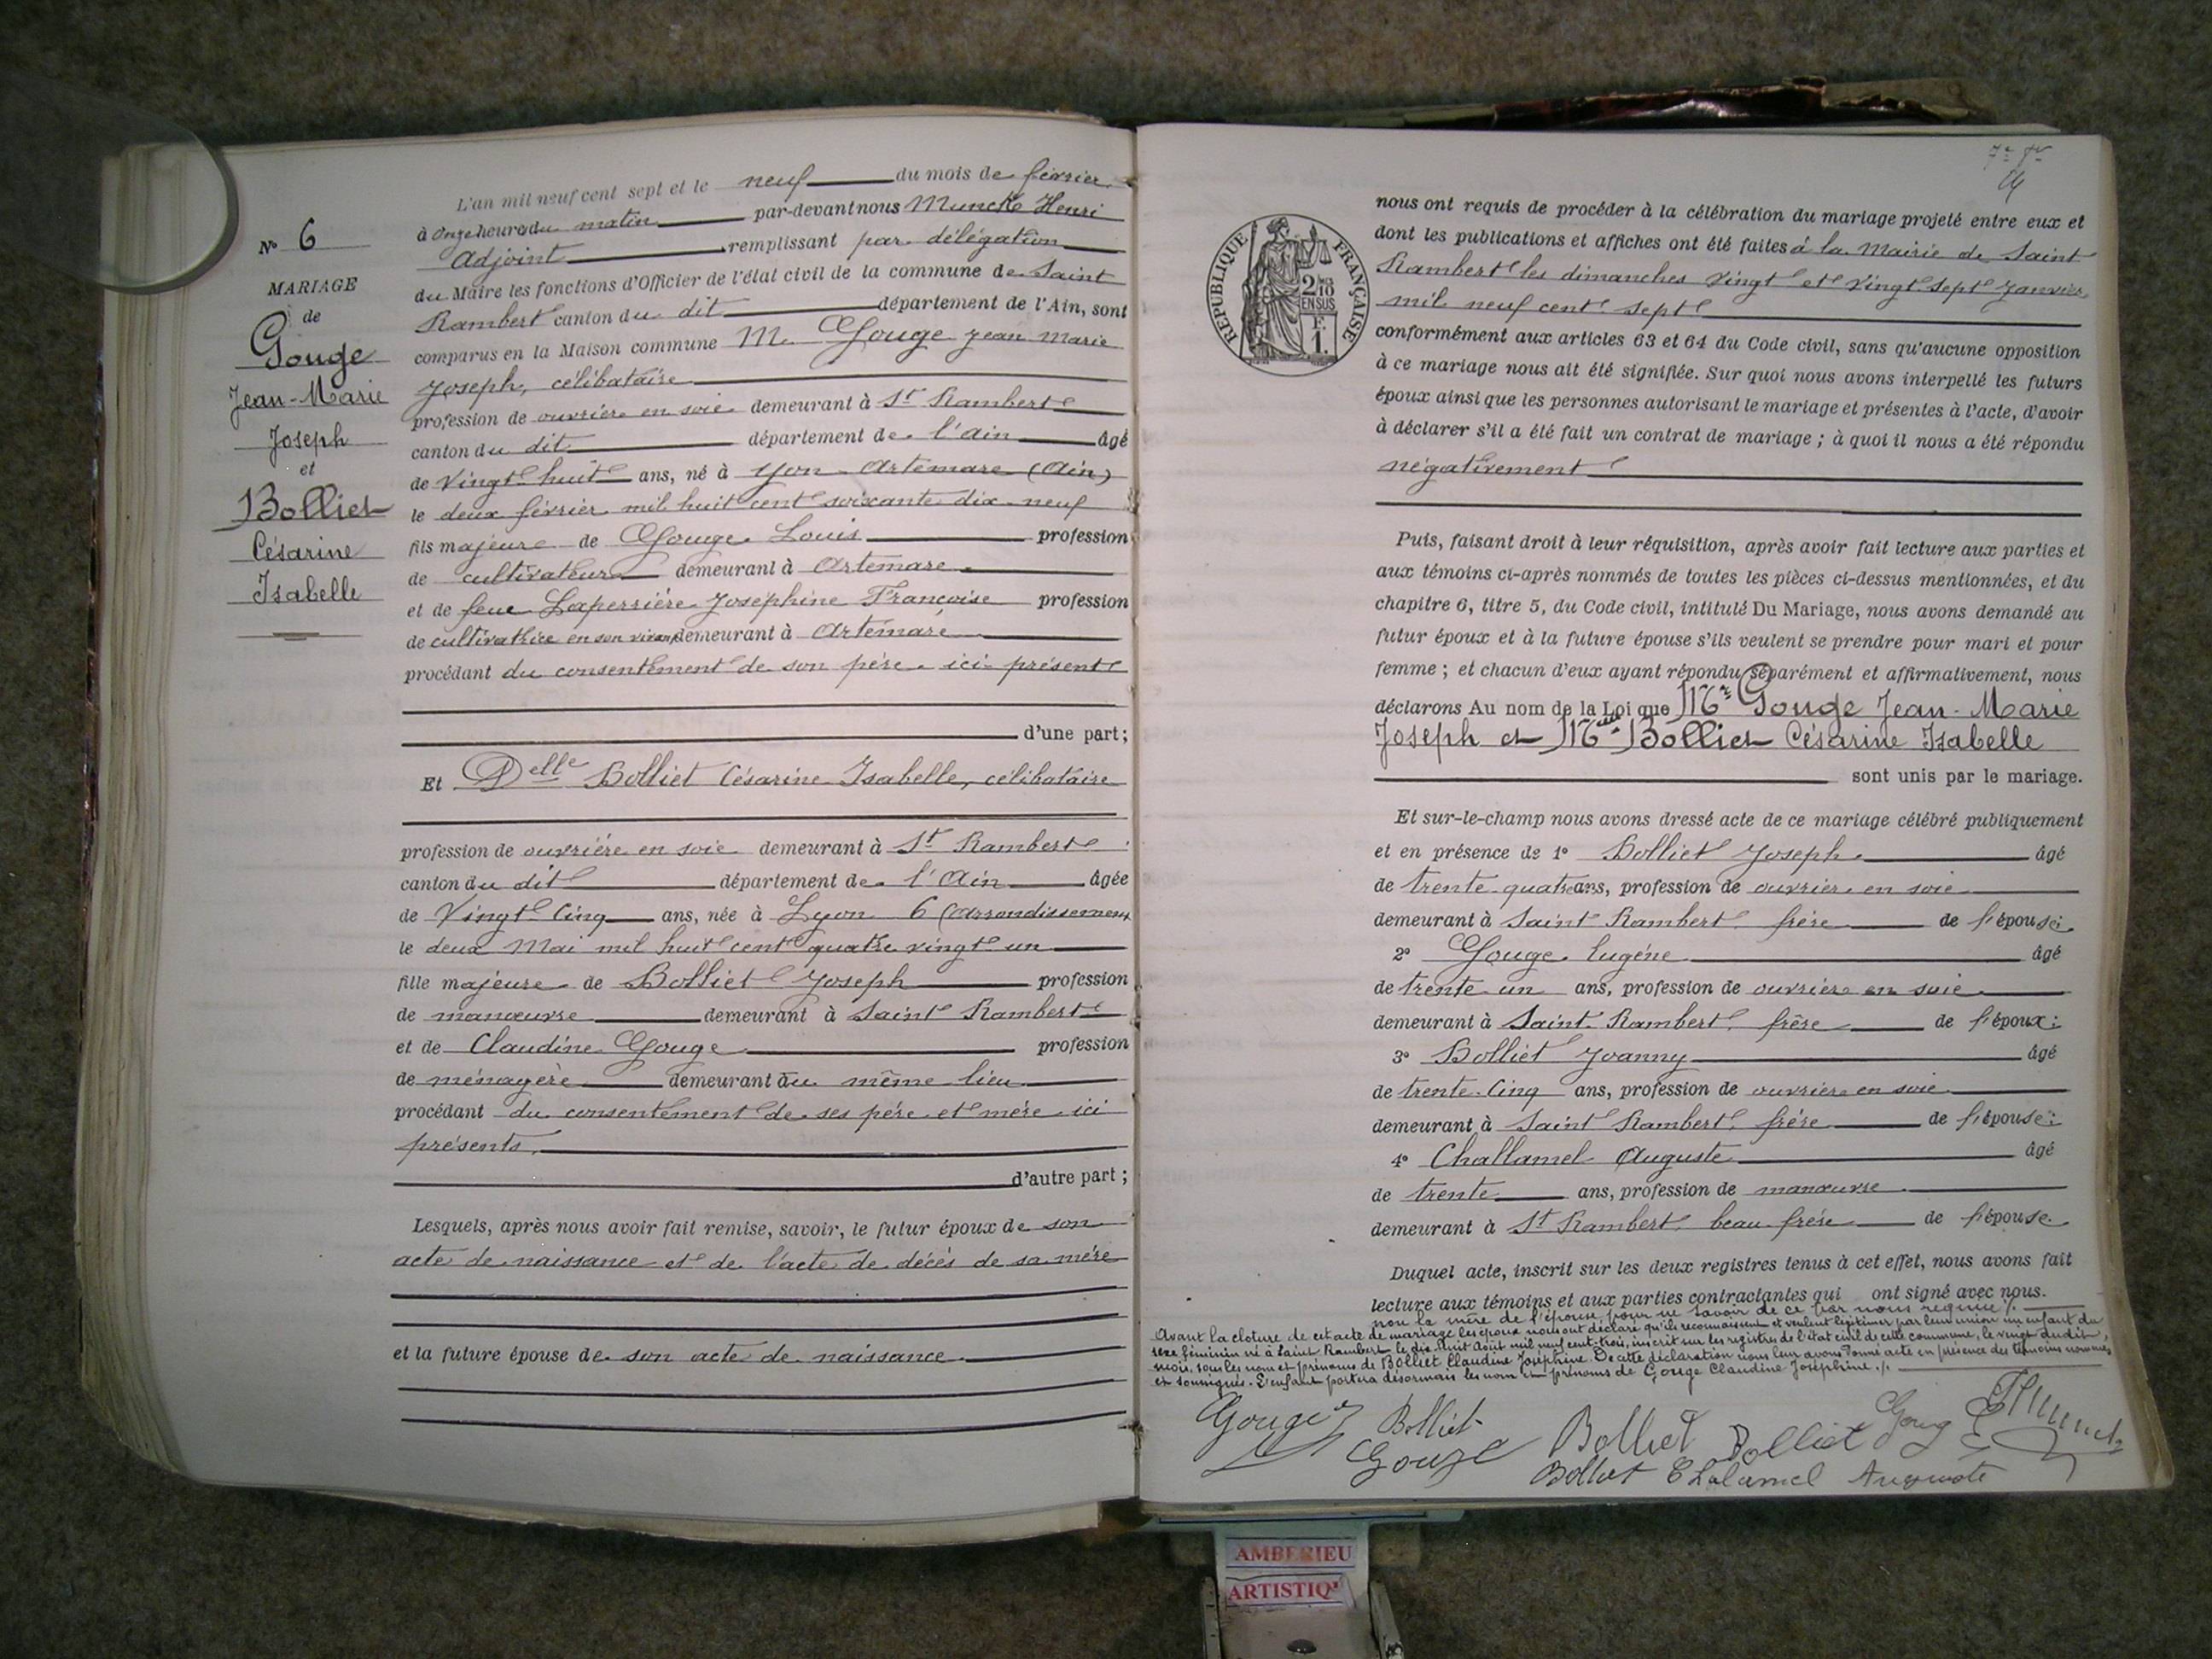 N° 6
MARIAGE
de
Gouge
Jean-Marie
Joseph
et
Bolliet
Césarine
Isabelle
L'an mil neuf cent sept et le neuf du mois de février
à onze heures du matin par-devant nous Munck Henri
adjoint remplissant par délégation
du Maire les fonctions d'Officier de l'état civil de la commune de Saint
Rambert canton du dit département de l'Ain, sont
comparus en la Maison commune M. Gouge Jean Marie
Joseph, célibataire
profession de ouvrier en soie demeurant à St Rambert
canton du dit département de l'ain âgé
de vingt huit ans, né à Yon-Artemare (Ain)
le deux février mil huit cent soixante dix-neuf
fils majeur de Gouge Louis profession
de cultivateur demeurant à Artemare
et de feue Laperrière Joséphine Françoise profession
de cultivatrice en son vivant demeurant à Artemare
procédant du consentement de son père ici présent
d'une part;
Et Delle Bolliet Césarine Isabelle, célibataire
profession de ouvrière en soie demeurant à St Rambert
canton du dit département de l'Ain âgée
de Vingt Cinq ans, née à Lyon 6 (arrondissement
le deux Mai mil huit cent quatre vingt un
fille majeure de Bolliet Joseph profession
de manœuvre demeurant à Saint Rambert
et de Claudine Gouge profession
de ménagère demeurant au même lieu
procédant du consentement de ses père et mère ici
présents.
d'autre part;
Lesquels, après nous avoir fait remise, savoir, le futur époux de son
acte de naissance et de l'acte de décès de sa mère
et la future épouse de son acte de naissance
RÉPUBLIQUE FRANÇAISE
2/10
EN SUS
F.
1.
nous ont requis de procéder à la célébration du mariage projeté entre eux et
dont les publications et affiches ont été faites à la Mairie de Saint
Rambert les dimanches vingt et vingt sept Janvier
mil neuf cent sept
conformément aux articles 63 et 64 du Code civil, sans qu'aucune opposition
à ce mariage nous ait été signifiée. Sur quoi nous avons interpellé les futurs
époux ainsi que les personnes autorisant le mariage et présentes à l'acte, d'avoir
à déclarer s'il a été fait un contrat de mariage; à quoi il nous a été répondu
négativement
Puis, faisant droit à leur réquisition, après avoir fait lecture aux parties et
aux témoins ci-après nommés de toutes les pièces ci-dessus mentionnées, et du
chapitre 6, titre 5, du Code civil, intitulé Du Mariage, nous avons demandé au
futur époux et à la future épouse s'ils veulent se prendre pour mari et pour
femme; et chacun d'eux ayant répondu séparément et affirmativement, nous
déclarons Au nom de la Loi que Mr Gouge Jean-Marie
Joseph et Melle Bolliet Césarine Isabelle
sont unis par le mariage.
Et sur-le-champ nous avons dressé acte de ce mariage célébré publiquement
et en présence de 1° Bolliet Joseph âgé
de trente-quatre ans, profession de ouvrier en soie
demeurant à Saint Rambert, frère de l'épouse;
2° Gouge Eugène âgé
de trente un ans, profession de ouvrier en soie
demeurant à Saint Rambert, frère de l'époux;
3° Bolliet Joanny âgé
de trente-cinq ans, profession de ouvrier en soie
demeurant à Saint Rambert, frère de l'épouse;
4° Challamel Auguste âgé
de trente ans, profession de manœuvre
demeurant à St Rambert, beau-frère de l'épouse
Duquel acte, inscrit sur les deux registres tenus à cet effet, nous avons fait
lecture aux témoins et aux parties contractantes qui ont signé avec nous.
non la mère de l'épouse pour ne savoir de ce par nous requise ./.
Avant la cloture de cet acte de mariage les époux nous ont déclaré qu'ils reconnaissent et veulent légitimer par leur union un enfant du
sexe féminin né à Saint Rambert le dix-huit Août mil neuf cent trois, inscrit sur les registres de l'état civil de cette commune, le vingt dudit
mois, sous les nom et prénoms de Bolliet Claudine Joséphine. De cette déclaration nous leur avons donné acte en présence des témoins nommés
et soussignés. L'enfant portera désormais les nom et prénoms de Gouge Claudine Joséphine ./.
Gouge Bolliet Bolliet Bolliet Goug HMunck
Gouge Bolliet Chalamel Auguste
AMBERIEU
ARTISTIQ